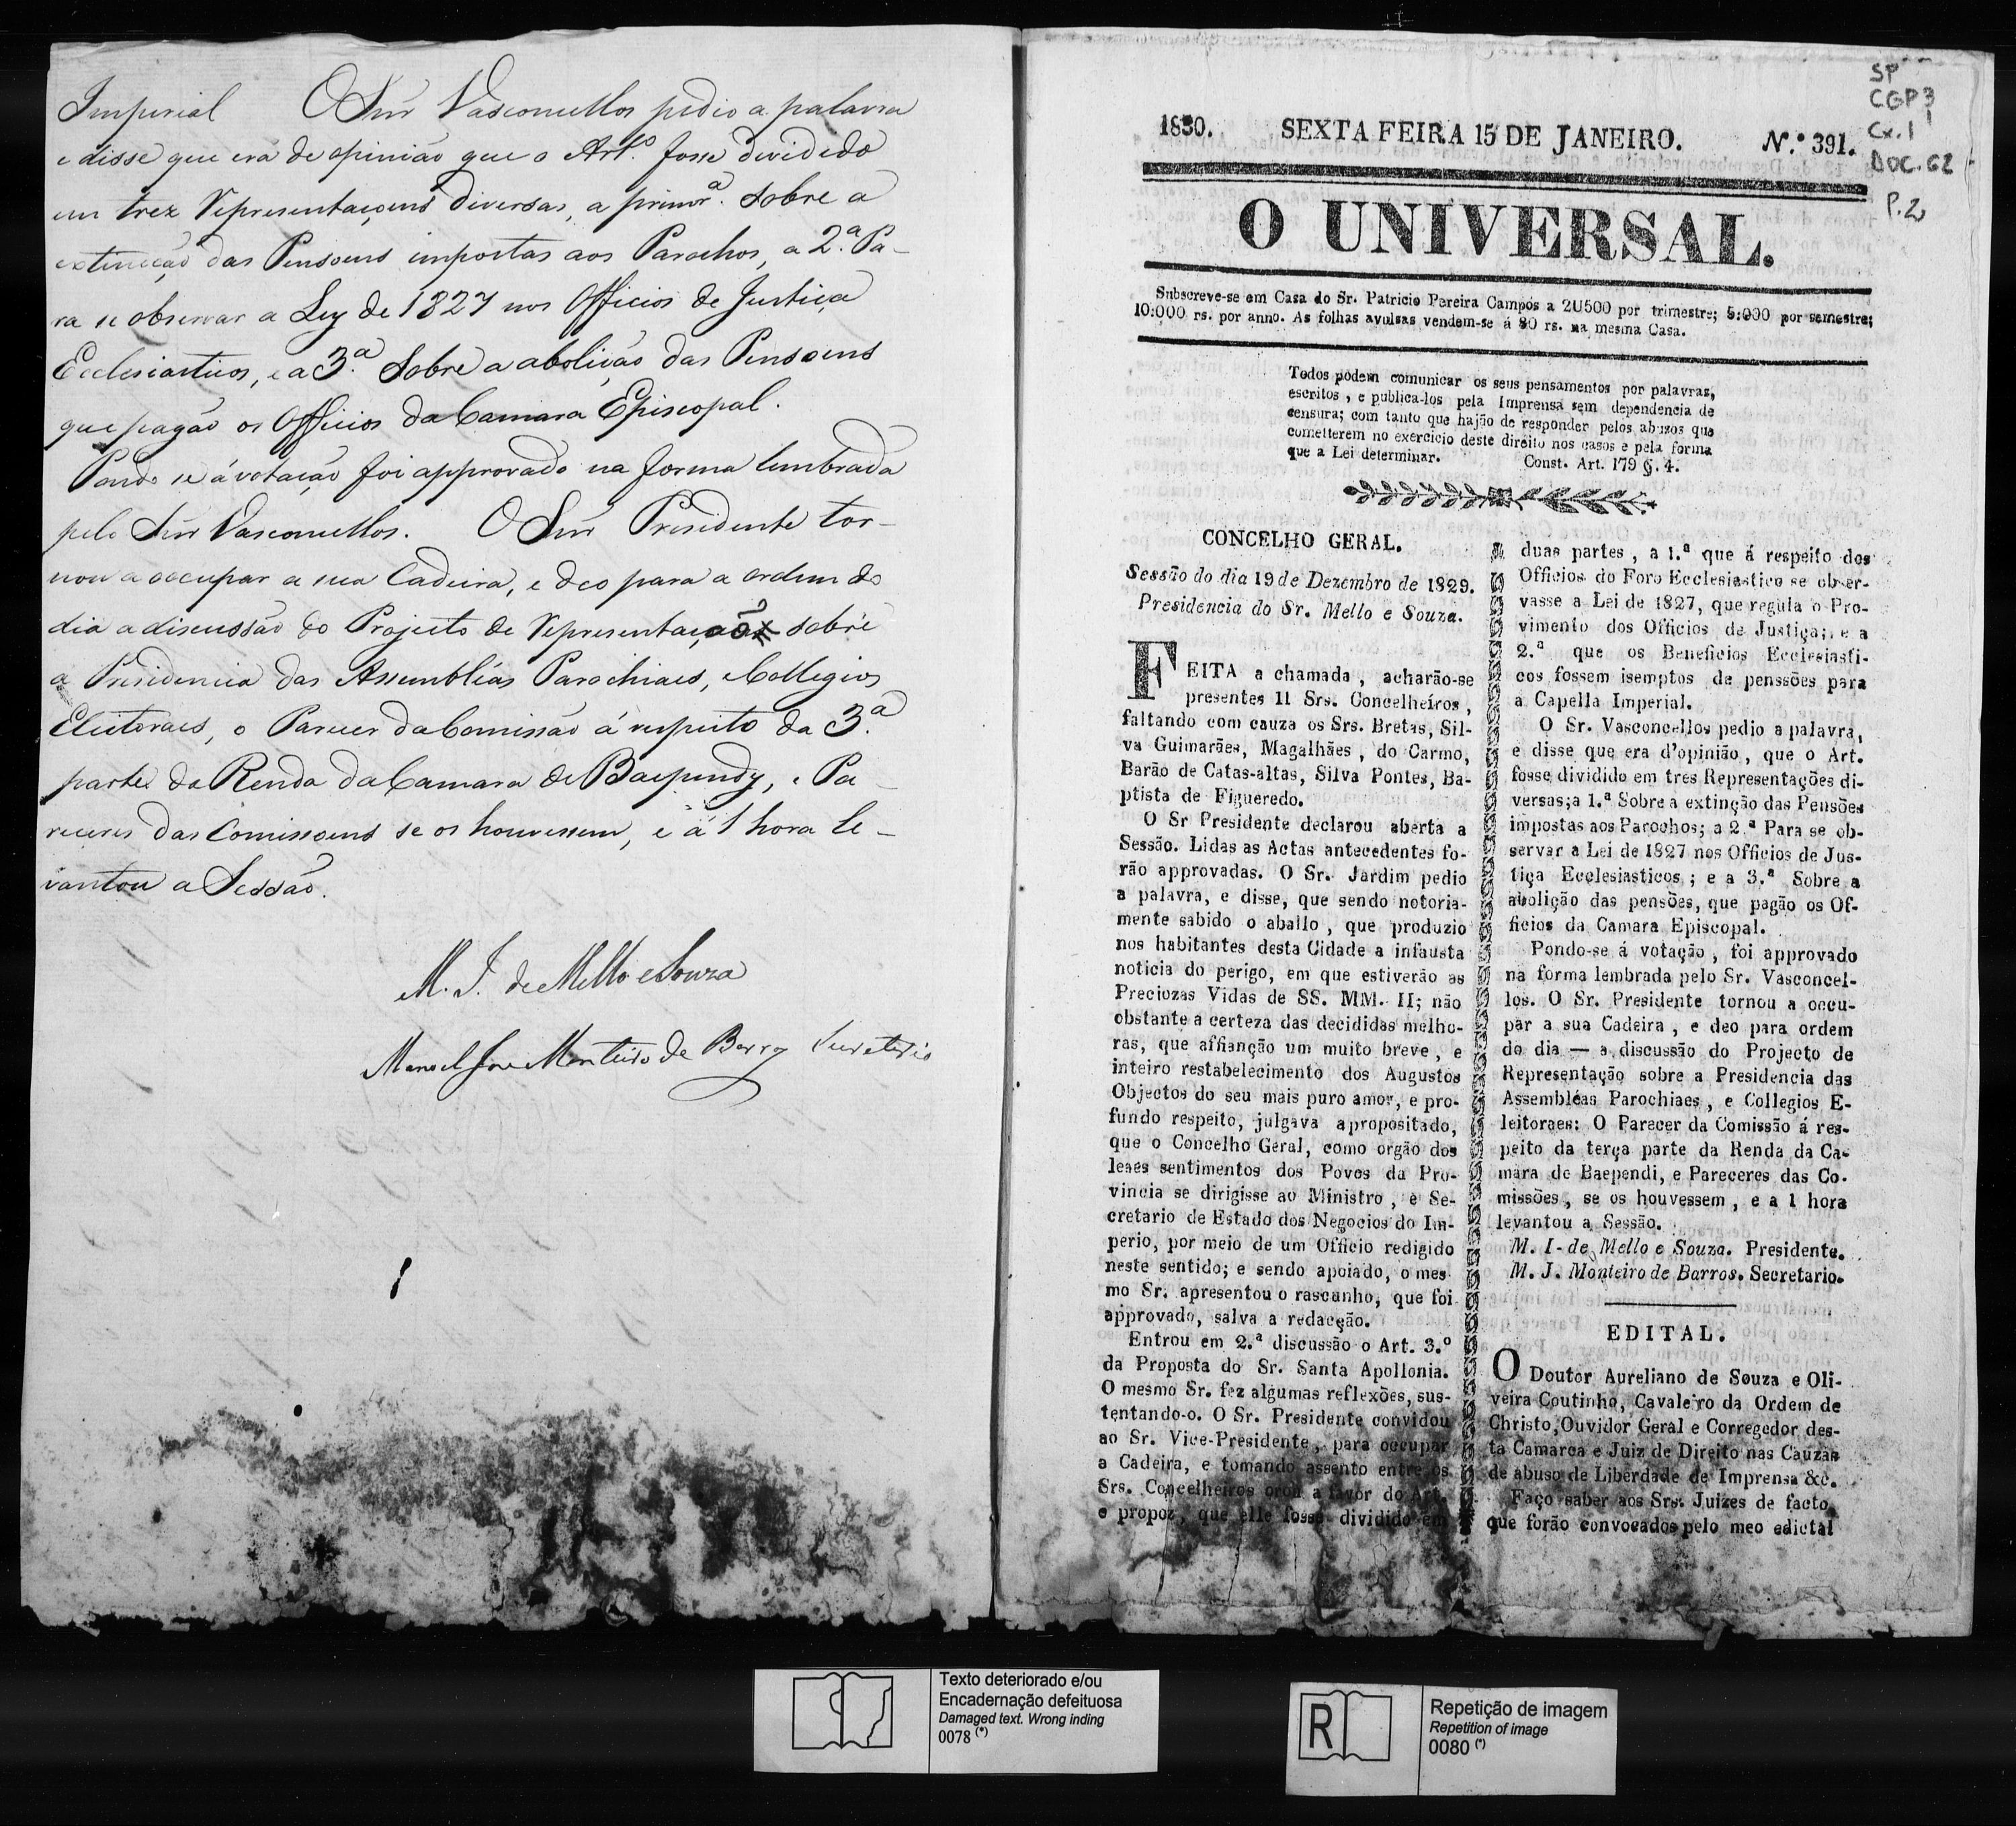 Imperial O Snr Vasconcellos pedio a palavra
e disse que era de opinião que o Art.º fosse dividido
em trez Representaçoens diversas, a primr.ª sobre a
extincção das Pensoens impostas aos Parochos, a 2.ª Pa-
ra se observar a Ley de 1827 nos Officios de Justiça
Ecclesiasticos, e a 3.ª Sobre a abolição das Pensoens
que pagão os Officios da Camara Episcopal.
Pondo se á votação foi approvado na forma lembrada
pelo Snr Vasconcellos. O Snr Presidente tor-
nou a occupar a sua Cadeira, e deo para a ordem do
dia a discussão do Projecto de Representação sobre
a Presidencia das Assembléas Parochiaes, e Collegios
Eleitoraes, o Parecer da Comissão á respeito da 3.ª
parte da Renda da Camara de Baependy, e Pa-
receres das Comissoens se os houvessem, e á 1 hora le-
vantou a Sessão.
M. I. de Mello e Souza
Manoel Jose Monteiro de Barros Secretario
SP
CGP3
Cx.1
DOC.62
P.2
1830. SEXTA FEIRA 15 DE JANEIRO. N.º 391.
O UNIVERSAL.
Subscreve-se em Casa do Sr. Patricio Pereira Campos a 2U500 por trimestre; 5:000 por semestre;
10:000 rs. por anno. As folhas avulsas vendem-se á 80 rs. na mesma Casa.
Todos podem comunicar os seus pensamentos por palavras,
escritos, e publica-los pela Imprensa sem dependencia de
censura; com tanto que hajão de responder pelos abusos que
cometterem no exercicio deste direito nos casos e pela forma
que a Lei determinar. Const. Art. 179 §. 4.
CONCELHO GERAL.
Sessão do dia 19 de Dezembro de 1829.
Presidencia do Sr. Mello e Souza.
FEITA a chamada, acharão-se
presentes 11 Srs. Concelheiros,
faltando com cauza os Srs. Bretas, Sil-
va Guimarães, Magalhães, do Carmo,
Barão de Catas-altas, Silva Pontes, Ba-
ptista de Figueredo.
O Sr Presidente declarou aberta a
Sessão. Lidas as Actas antecedentes fo-
rão approvadas. O Sr. Jardim pedio
a palavra, e disse, que sendo notoria-
mente sabido o aballo, que produzio
nos habitantes desta Cidade a infausta
noticia do perigo, em que estiverão as
Preciozas Vidas de SS. MM. II; não
obstante a certeza das decididas melho-
ras, que affianção um muito breve, e
inteiro restabelecimento dos Augustos
Objectos do seu mais puro amor, e pro-
fundo respeito, julgava apropositado,
que o Concelho Geral, como orgão dos
leaes sentimentos dos Povos da Pro-
vincia se dirigisse ao Ministro, e Se-
cretario de Estado dos Negocios do Im-
perio, por meio de um Officio redigido
neste sentido; e sendo apoiado, o mes-
mo Sr. apresentou o rascunho, que foi
approvado, salva a redacção.
Entrou em 2.ª discussão o Art. 3.º
da Proposta do Sr. Santa Apollonia.
O mesmo Sr. fez algumas reflexões, sus-
tentando-o. O Sr. Presidente convidou
ao Sr. Vice-Presidente, para occupar
a Cadeira, e tomando assento entre os
Srs. Concelheiros orou a favor do Art.
e propoz, que elle fosse dividido em
duas partes, a 1.ª que á respeito dos
Officios do Foro Ecclesiastico se obser-
vasse a Lei de 1827, que regula o Pro-
vimento dos Officios de Justiça; e a
2.ª que os Beneficios Ecclesiasti-
cos fossem isemptos de penssões para
a Capella Imperial.
O Sr. Vasconcellos pedio a palavra,
e disse que era d'opinião, que o Art.
fosse dividido em tres Representações di-
versas; a 1.ª Sobre a extinção das Pensões
impostas aos Parochos; a 2.ª Para se ob-
servar a Lei de 1827 nos Officios de Jus-
tiça Ecclesiasticos; e a 3.ª Sobre a
abolição das pensões, que pagão os Of-
ficios da Camara Episcopal.
Pondo-se á votação, foi approvado
na forma lembrada pelo Sr. Vasconcel-
los. O Sr. Presidente tornou a occu-
par a sua Cadeira, e deo para ordem
do dia — a discussão do Projecto de
Representação sobre a Presidencia das
Assembléas Parochiaes, e Collegios E-
leitoraes: O Parecer da Comissão á res-
peito da terça parte da Renda da Ca-
mara de Baependi, e Pareceres das Co-
missões, se os houvessem, e a 1 hora
levantou a Sessão.
M. I- de Mello e Souza. Presidente.
M. J. Monteiro de Barros. Secretario.
EDITAL.
O Doutor Aureliano de Souza e Oli-
veira Coutinho, Cavaleiro da Ordem de
Christo, Ouvidor Geral e Corregedor des-
ta Camarca e Juiz de Direito nas Cauzas
de abuso de Liberdade de Imprensa &c.
Faço saber aos Srs. Juizes de facto,
que forão convocados pelo meo edictal
Texto deteriorado e/ou
Encadernação defeituosa
Damaged text. Wrong inding
0078 (*)
R
Repetição de imagem
Repetition of image
0080 (*)